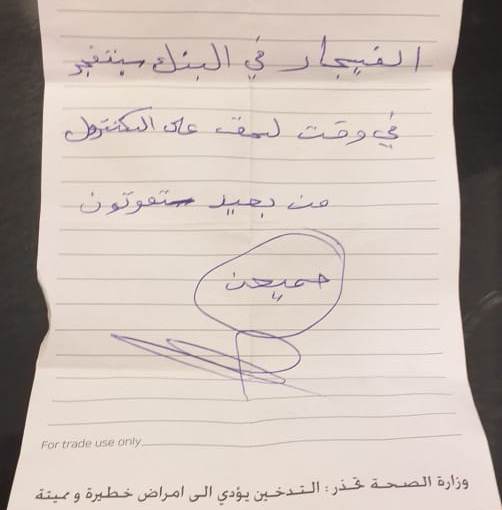 الفيجار في البنك ستنفجر
في وقت لحق على الكنترول
من بعيد ستموتون
جميعن
For trade use only
وزارة الصحة تحذر: التدخين يؤدي الى امراض خطيرة و مميتة